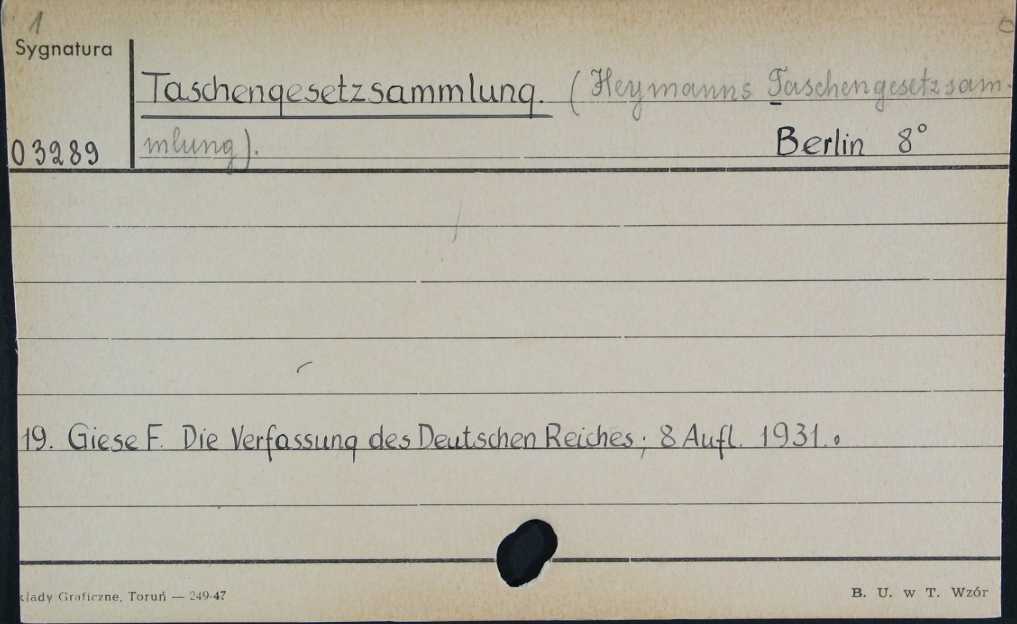 1
Sygnatura
Taschengesetzsammlung. (Heymanns Taschengesetzsam-
03289 mlung). Berlin 8°
19. Giese F. Die Verfassung des Deutschen Reiches; 8 Aufl. 1931.
kłady Graficzne, Toruń — 249-47 B. U. w T. Wzór